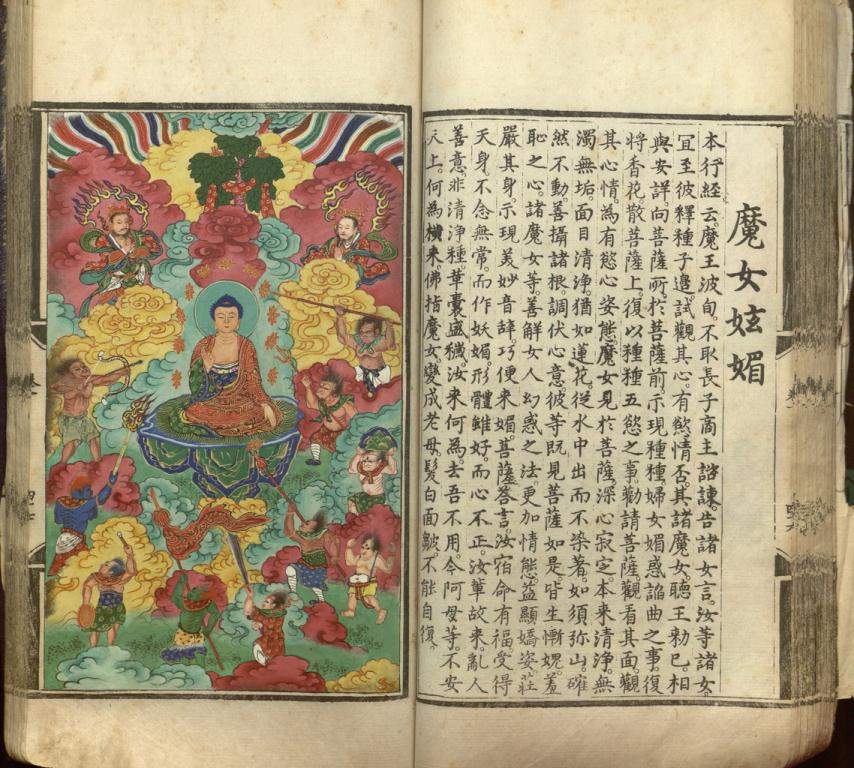 魔女妶媚
本行經云。魔王波旬。不取長子商主諮諫。告諸女言。汝等諸女。
冝至彼釋種子邉。試觀其心。有慾情否。其諸魔女。聽王勅已。相
與安詳。向菩薩所。於菩薩前。示現種種。婦女媚惑諂曲之事。復
將香花。散菩薩上。復以種種五慾之事。勸請菩薩。觀看其面。觀
其心情。為有慾心姿態。魔女見於菩薩。深心寂定。本来清淨。無
濁無垢。面目清淨。猶如蓮花。從水中出而不染著。如須弥山。確
然不動。善攝諸根。調伏心意。彼等既見菩薩如是。皆生慚愧。羞
恥之心。諸魔女等。善解女人幻惑之法。更加情態。益顯嬌姿。莊
嚴其身。示現美妙音辝。巧便来媚。菩薩答言。汝宿命有福。受得
天身。不念無常。而作妖媚。形體雖好。而心不正。汝輩故来。亂人
善意。非清淨種。革囊盛穢。汝来何為。去吾不用。今阿母等。不安
天上。何為橫来。佛指魔女。變成老母。髮白面皺。不能自復。